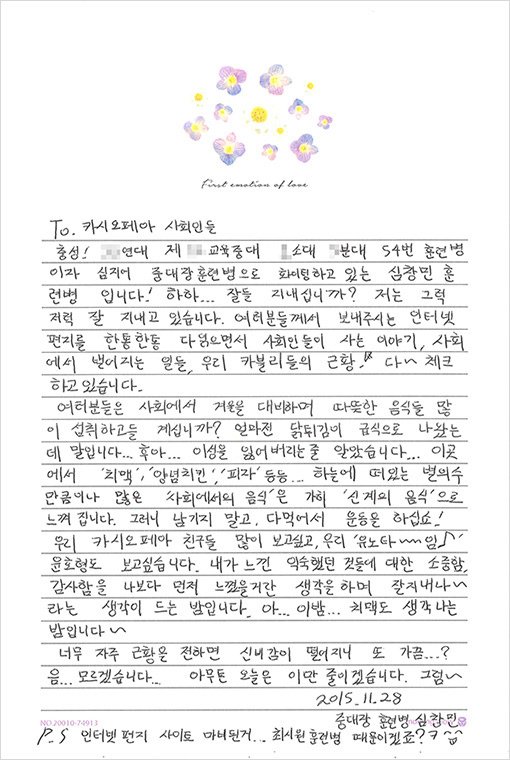 First emotion of love
To. 카시오페아 사회인들
충성! 연대 제 교육중대 소대 분대 54번 훈련병
이자 심지어 중대장훈련병으로 화이팅하고 있는 심창민 훈
련병 입니다! 하하... 잘들 지내십니까? 저는 그럭
저럭 잘 지내고 있습니다. 여러분들께서 보내주시는 인터넷
편지를 한통한통 다읽으면서 사회인들이 사는 이야기, 사회
에서 벌어지는 일들, 우리 카블리들의 근황! 다~ 체크
하고있습니다.
여러분들은 사회에서 겨울을 대비하며 따뜻한 음식들 많
이 섭취하고들 계십니까? 얼마전 닭튀김이 급식으로 나왔는
데 말입니다... 후아... 이성을 잃어버리는줄 알았습니다... 이곳
에서 '치맥', '양념치킨', '피자' 등등... 하늘에 떠있는 별의수
만큼이나 많은 '사회에서의 음식'은 가히 '신계의 음식'으로
느껴집니다. 그러니 남기지 말고, 다먹어서 운동을 하십쇼!
우리 카시오페아 친구들 많이 보고싶고, 우리 '유노타~~임♪'
윤호형도 보고싶습니다. 내가 느낀 익숙했던 것들에 대한 소중함,
감사함을 나보다 먼저 느꼈을거란 생각을 하며 잘지내나~
라는 생각이 드는 밤입니다. 아... 이밤... 치맥도 생각나는
밤입니다~
너무 자주 근황을 전하면 신비감이 떨어지니 또 가끔...?
음... 모르겠습니다... 아무튼 오늘은 이만 줄이겠습니다. 그럼~
2015.11.28
중대장 훈련병 심창민
NO.20010-74913
P.S 인터넷 편지 사이트 마비된거... 최시원 훈련병 때문이겠죠?ㅋ^^